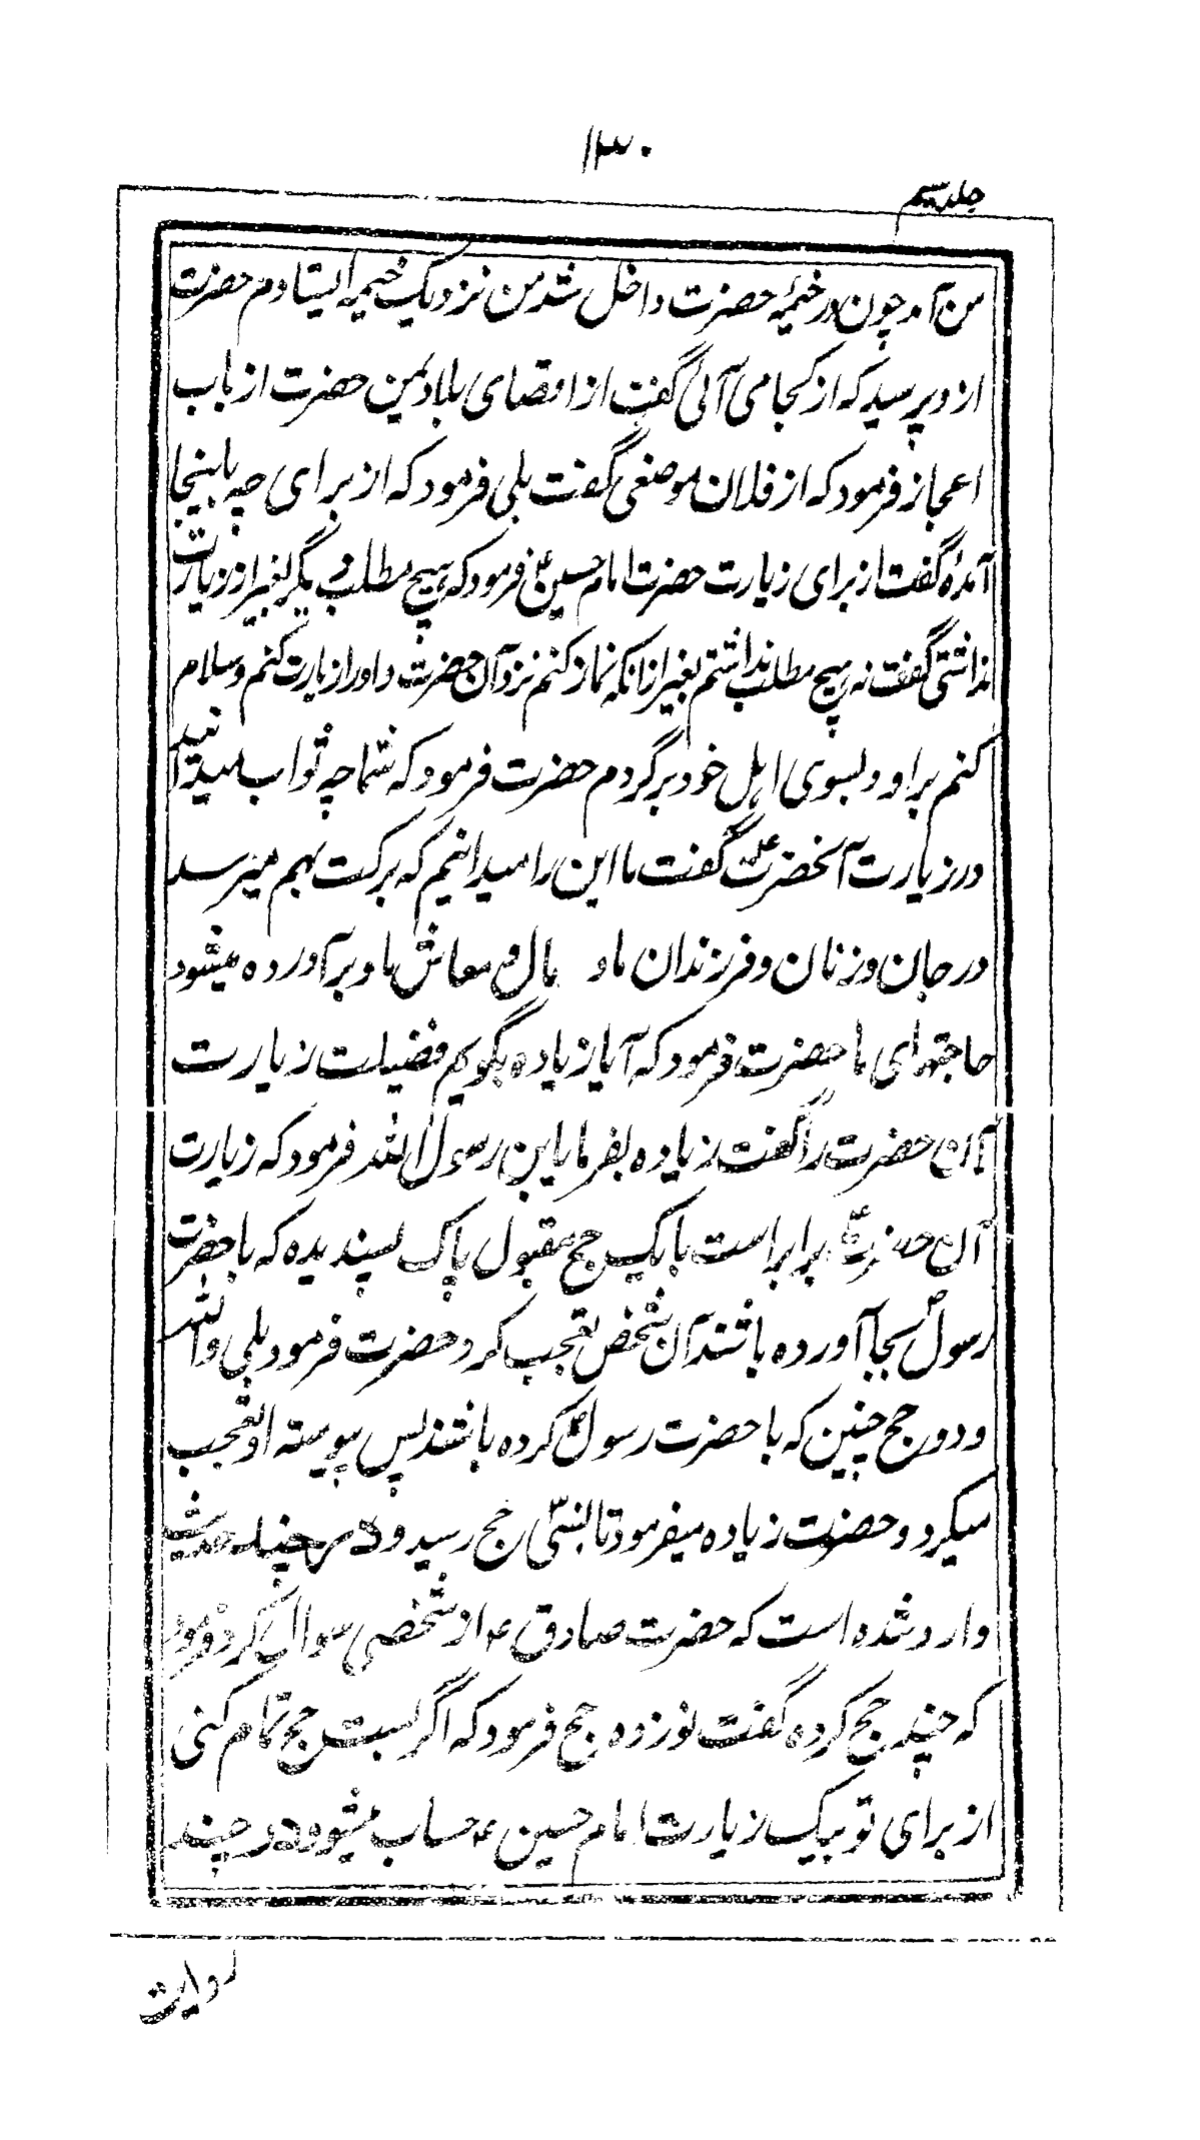 ۱۳۰
جلد سیم
من آمد چون در خیمهٔ حضرت داخل شد من نزدیک خیمه ایستادم حضرت
از و پرسید که از کجا می آئی گفت از اقصای بلاد یمن حضرت از باب
اعجاز فرمود که از فلان موضعی گفت بلی فرمود که از برای چه باینجا
آمدهٔ گفت از برای زیارت حضرت امام حسین ع فرمود که هیچ مطلب دیگر بغیر از زیارت
نداشتی گفت نه هیچ مطلب نداشتم بغیر از انکه نماز کنم نزد آن حضرت و او را زیارت کنم و سلام
کنم بر او و بسوی اهل خود برگردم حضرت فرمود که شما چه ثواب میدانید
در زیارت آنحضرت ع گفت ما این را میدانیم که برکت بهم میرسد
در جان و زنان و فرزندان ما و مال و معاش ما و برآورده میشود
حاجتهای ما حضرت فرمود که آیا زیاده بگویم فضیلت زیارت
آن حضرت را گفت زیاده بفرما یابن رسول الله فرمود که زیارت
آن حضرت ع برابر است با یک حج مقبول پاک پسندیده که با حضرت
رسول ص بجا آورده باشند آن شخص تعجب کرد حضرت فرمود بلی والله
و دو حج چنین که با حضرت رسول ص کرده باشند پس پیوسته او تعجب
میکرد و حضرت زیاده میفرمود تا بسّی حج رسید و در چند حدیث
وارد شده است که حضرت صادق ع از شخصی سوال کرد و فرمود
که چند حج کرده گفت نوزده حج فرمود که اگر بیست حج تمام کنی
از برای تو بیک زیارت امام حسین ع حساب میشود و در چند
روایت